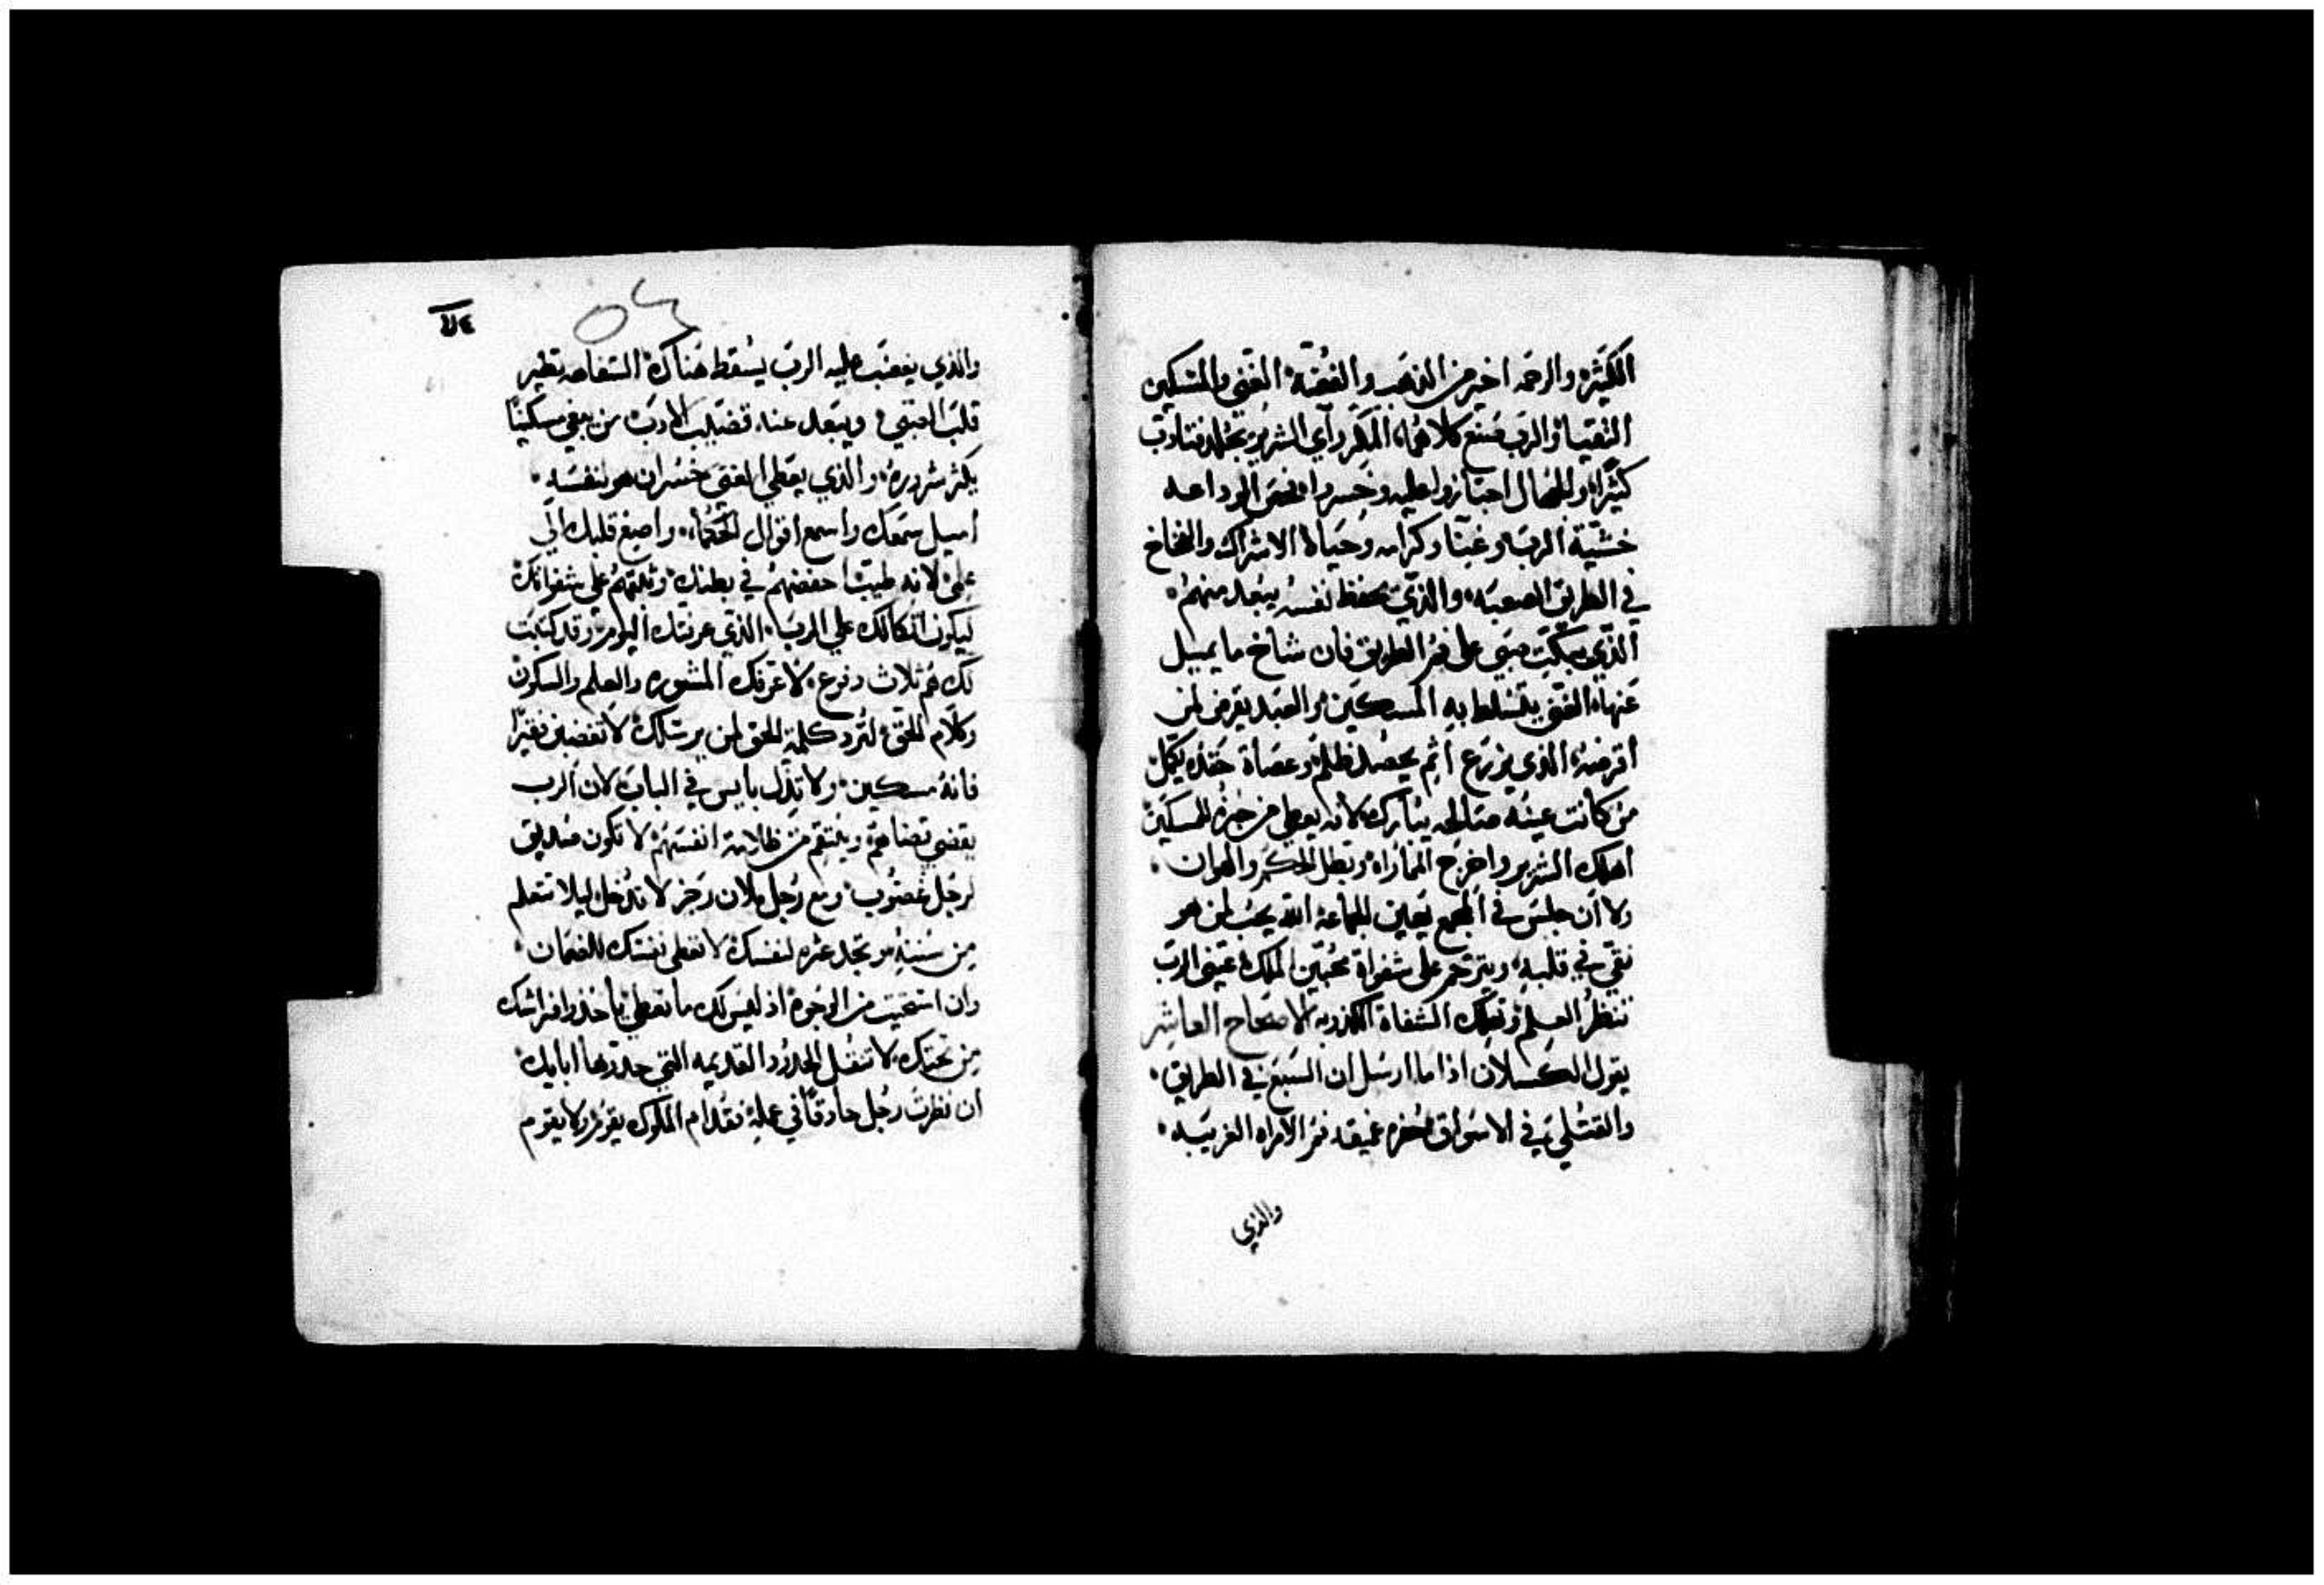 الكثيره والرحمه اخير من الدهب والفضة الغني والمسكين
التقيا والرب صنع كلاهما المكر رآي الشرير يجلد فتادب
كثيرا والجهال اجتازوا عليه وخسروا فحص الوداعه
خشية الرب وغنا وكرامه وحياة الاشراك والفخاخ
في الطريق الصعبه والذي يحفظ نفسه يبعد منهم
الذي يبكت صبي على فم الطريق فان شاخ ما يميل
عنها الغني يتسلط به المسكين والعبد يقرض لمن
اقرضه الذي يزرع اثم يحصد ظلم وعصاة حقده يكمل
من كانت عينه صالحه يبارك لانه يعطي من خبزه للمسكين
اهلك الشرير واخرج المماراه وتبطل الحكم والهوان
ولا ان جلس في المجمع تعين الجماعة الله يحب لمن هو
نقي في قلبه ويترحم على شفواة محبين الملك عيني الرب
تنظر العلم وتهلك الشفاة الكذوبه الاصحاح العاشر
يقول الكسلان اذا ما ارسل ان السبع في الطريق
والقتلي في الاسواق حفره عميقه فم الامراه الغريبه
والذي
والذي يغضب عليه الرب يسقط هناك السفاهه تطير
قلب الصبي ويبعد عنه قضيب الادب من يبغي مسكينا
يكثر شروره والذي يعطي الغني خسران هو لنفسه
اميل سمعك واسمع اقوال الحكماء واصغ قلبك الي
علمي لانه طيب احفضهم في بطنك وثبتهم على شفواتك
ليكون اتكالك على الرب الذي عرفتك اليوم وقد كتبت
لك هم ثلاث دفوع لاعرفك المشوره والعلم والسكون
وكلام الحق لترد كلمة الحق لمن يرسلك لا تغضب فقيرا
فانه مسكين ولا تذل بايس في الباب لان الرب
يقضي قضاهم وينتقم من ظلامة انفسهم لا تكون صديق
لرجل غضوب ومع رجل ملان رجز لا تدخل ليلا تتعلم
من سننه وتجد عثره لنفسك لا تعطي نفسك للضمان
وان استحيت من الوجوه اذ ليس لك ما تعطي ياخذوا فراشك
من تحتك لا تنقل الحدود القديمه التي حددها ابايك
ان نظرت رجل حادقا في عمله فقدام الملوك يقوم ولا يقوم